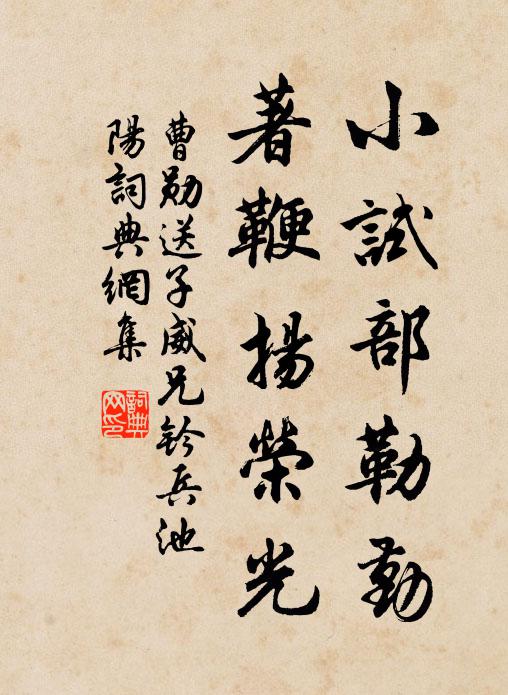 小試部勒勤
著鞭揚榮光
曹勛送子威兄鈐兵池
陽詞典網集
詞典
网印